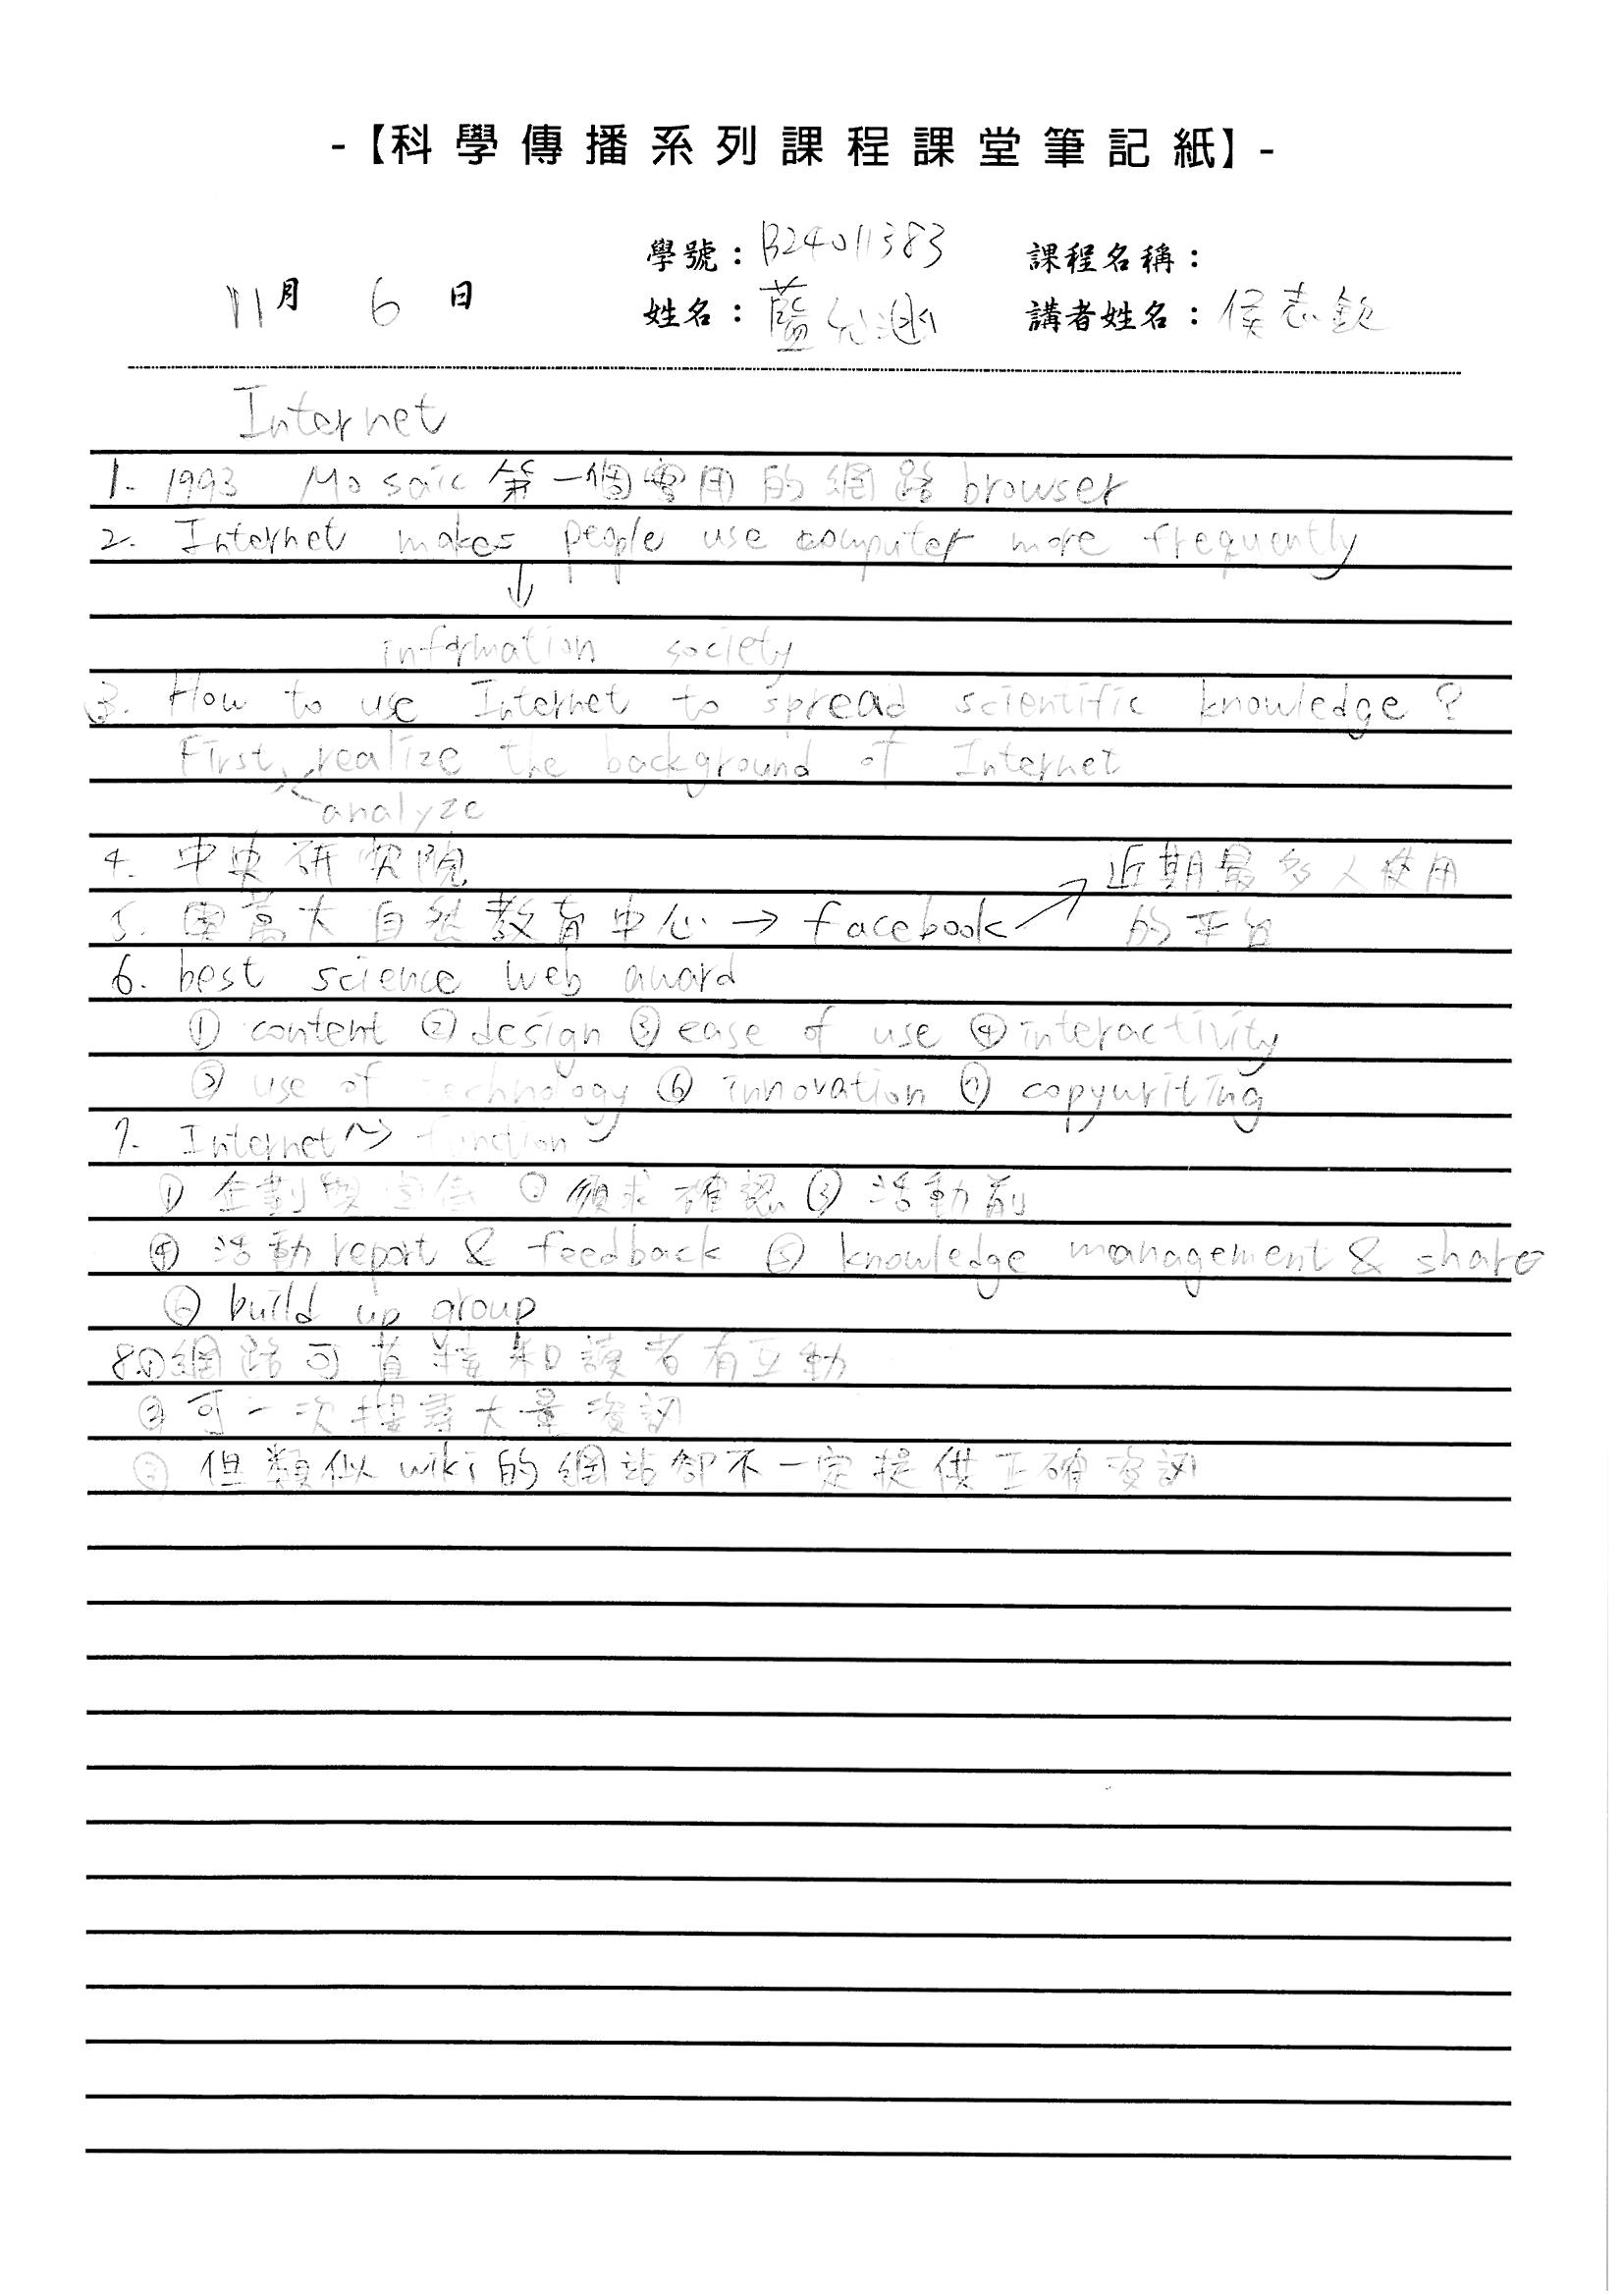 -【科學傳播系列課程課堂筆記紙】-
學號：B24011383 課程名稱：
11月 6 日 姓名：藍允 講者姓名：侯志欽
Internet
1. 1993 Mosaic 第一個實用的網路browser
2. Internet makes people use computer more frequently
↓
information society
3. How to use Internet to spread scientific knowledge?
First, realize the background of Internet
analyze
4. 中央研究院
近期最多人使用
5. 奧萬大自然教育中心 → facebook
的平台
6. best science web award
① content ② design ③ ease of use ④ interactivity
⑤ use of technology ⑥ innovation ⑦ copywriting
7. Internet → function
① 企劃與宣傳 ② 需求確認 ③ 活動前
④ 活動report & feedback ⑤ knowledge management & share
⑥ build up group
8.①網路可直接和讀者有互動
②可一次搜尋大量資訊
③ 但類似wiki的網站卻不一定提供正確資訊